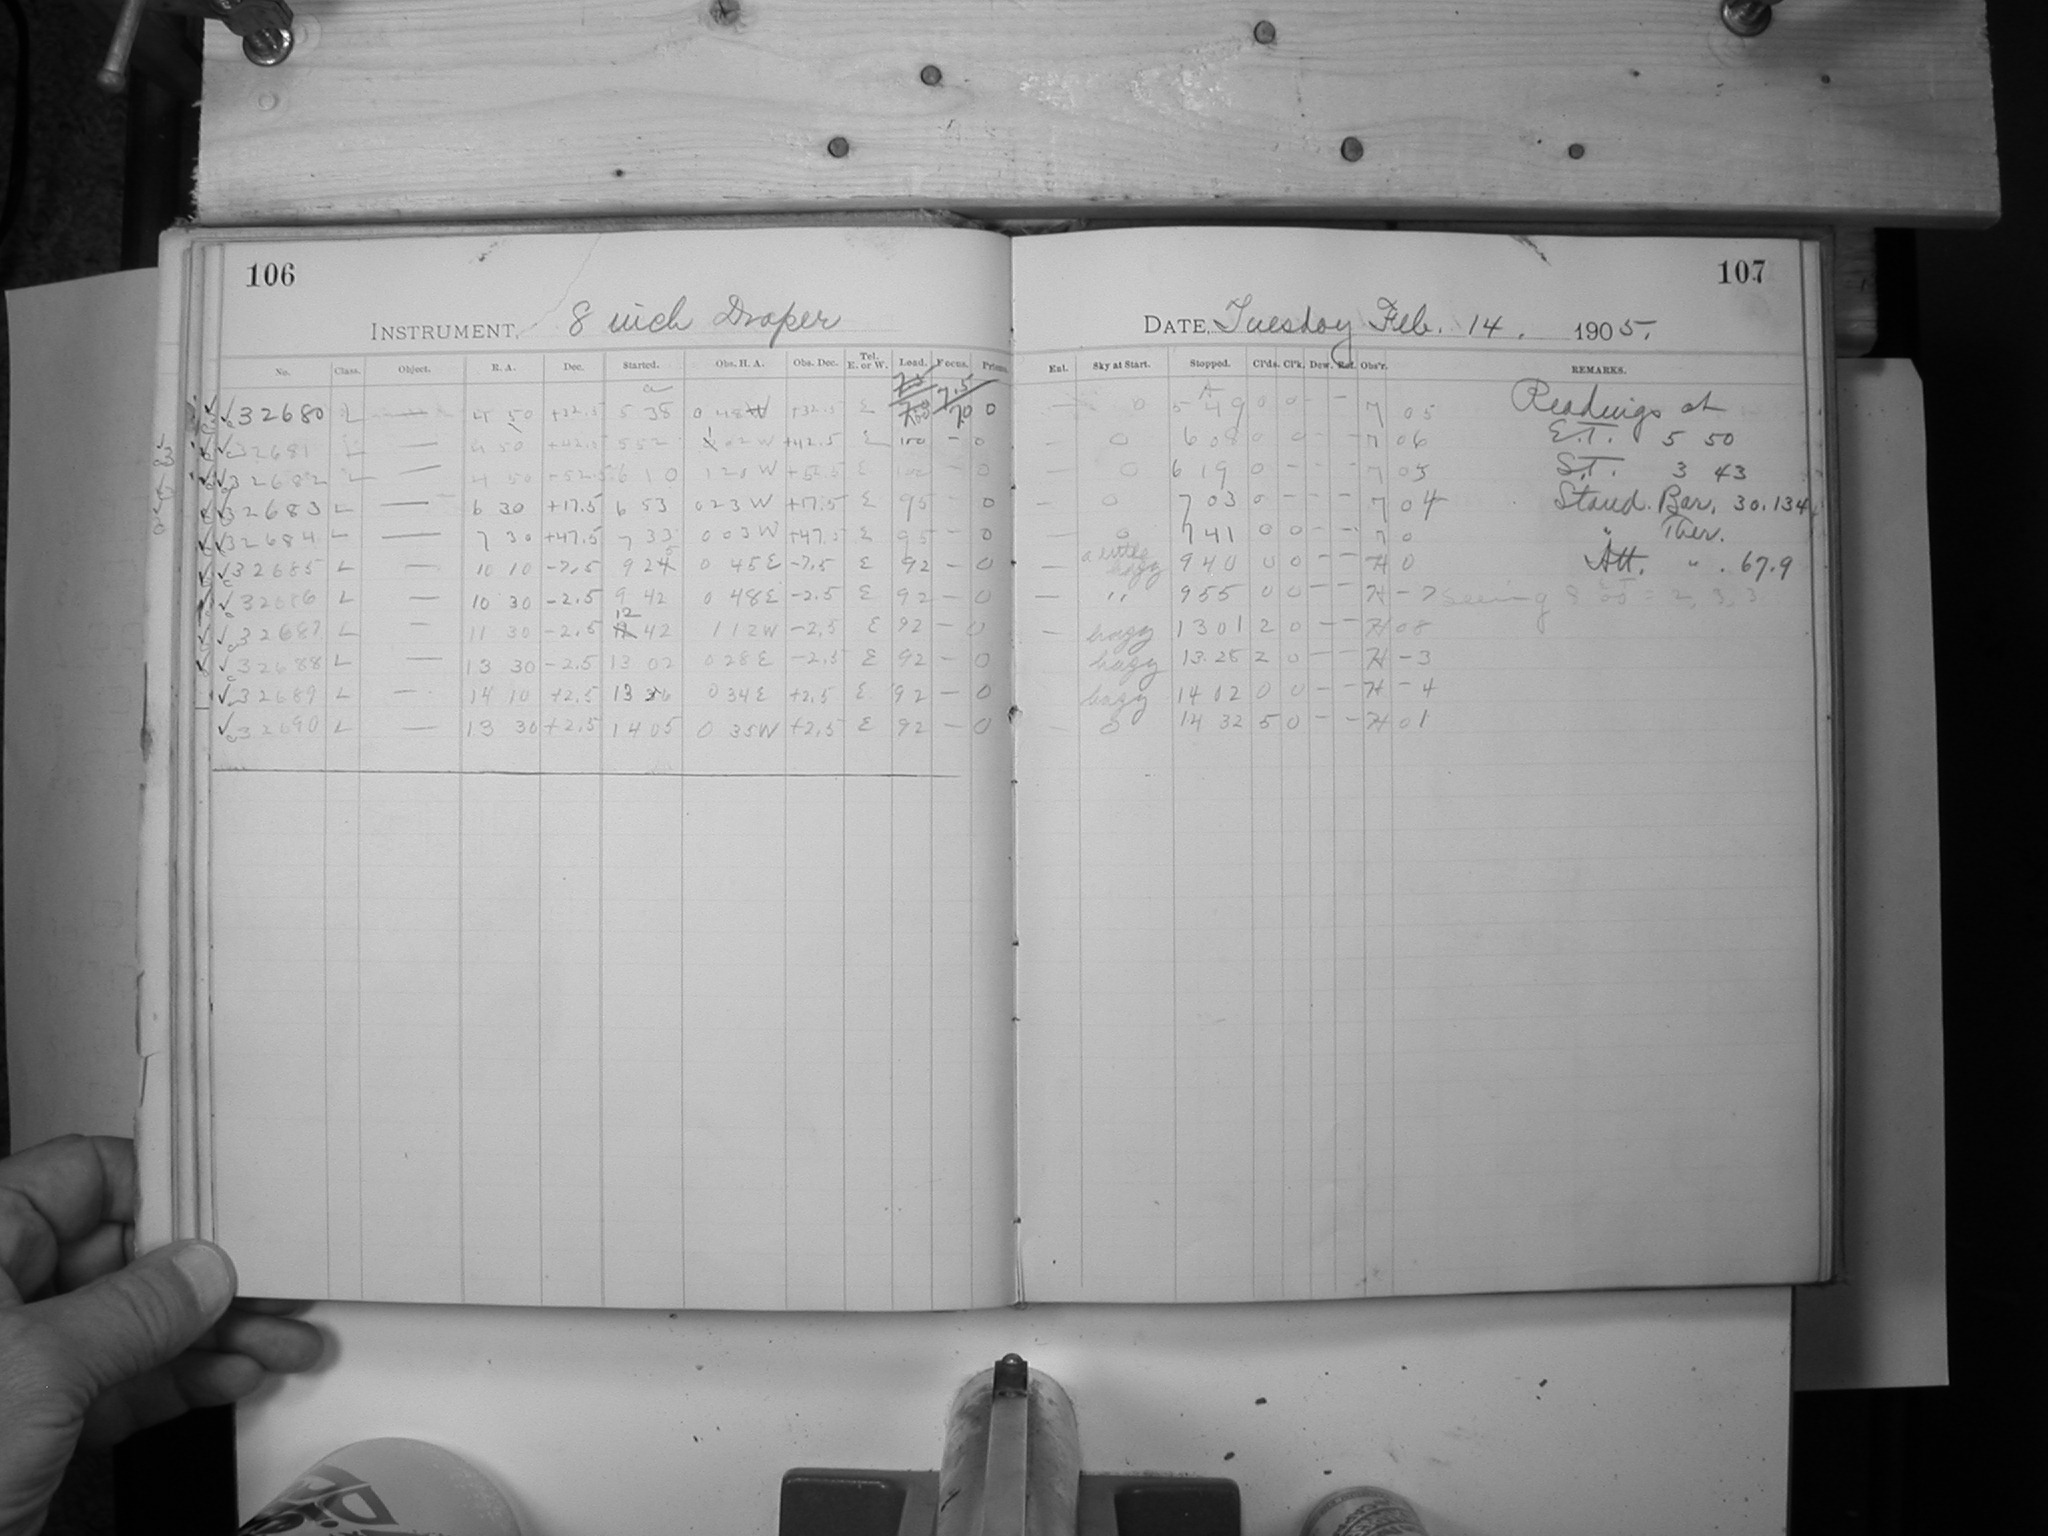 106
INSTRUMENT, 8 inch Draper
No. Class. Object. R. A. Dec. Started. Obs. H. A. Obs. Dec. Tel. E. or W. Load. Focus. Prisms.
32680 L — 4 50 +32.5 5 38 0 48 W +32.5 E 100 70 0
32681 L — 4 50 +42.5 5 52 1 02 W +42.5 E 100 - 0
32682 L — 4 50 +52.5 6 10 1 20 W +52.5 E 100 - 0
32683 L — 6 30 +17.5 6 53 0 23 W +17.5 E 95 - 0
32684 L — 7 30 +47.5 7 33 0 03 W +47.5 E 95 - 0
32685 L — 10 10 -7.5 9 25 0 45 E -7.5 E 92 - 0
32686 L — 10 30 -2.5 9 42 0 48 E -2.5 E 92 - 0
32687 L — 11 30 -2.5 12 42 1 12 W -2.5 E 92 - 0
32688 L — 13 30 -2.5 13 02 0 28 E -2.5 E 92 - 0
32689 L — 14 10 +2.5 13 36 0 34 E +2.5 E 92 - 0
32690 L — 13 30 +2.5 14 05 0 35 W +2.5 E 92 - 0
107
DATE, Tuesday Feb. 14. 1905.
Ext. Sky at Start. Stopped. Cl'ds. Cl'k. Dew. Ref. Obs'r. REMARKS.
0 5 49 0 0 - - 7 05 Readings at
— 0 6 08 0 0 - - 7 06 E.T. 5 50
0 6 19 0 - - - 7 05 S.T. 3 43
— 0 7 03 0 - - - 7 04 Stand. Bar. 30.134
— 0 7 41 0 0 - - 7 0 " Ther.
— a little hazy 9 40 0 0 - - H 0 Att. " . 67.9
— " 9 55 0 0 - - H - 7 Seeing 8 = 2, 3, 3
— hazy 13 01 2 0 - - H 08
hazy 13 25 2 0 - - H - 3
hazy 14 02 0 0 - - H - 4
— 0 14 32 5 0 - - H 01
Die